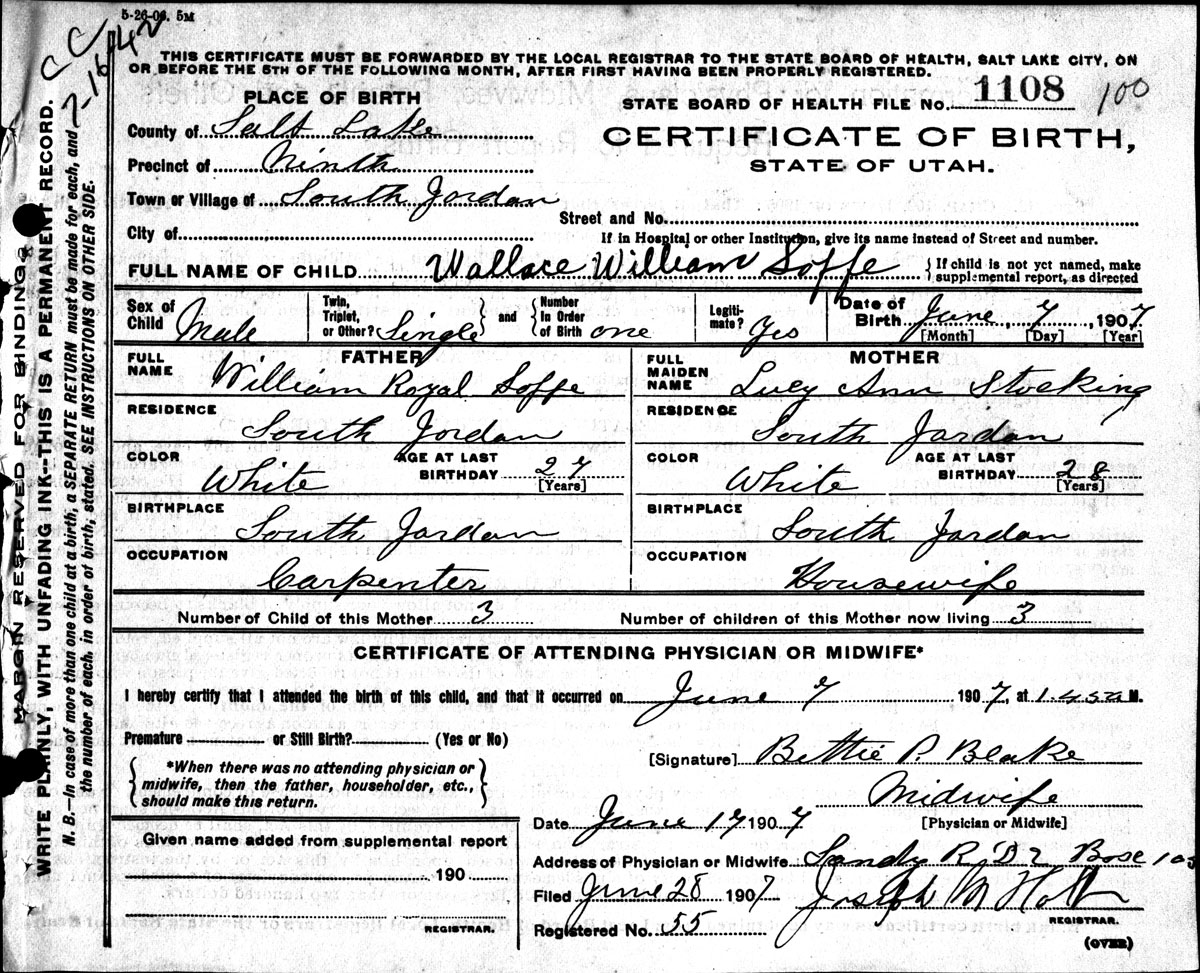 5-26-06. 5M
CC
7-16-42
THIS CERTIFICATE MUST BE FORWARDED BY THE LOCAL REGISTRAR TO THE STATE BOARD OF HEALTH, SALT LAKE CITY, ON
OR BEFORE THE 5TH OF THE FOLLOWING MONTH, AFTER FIRST HAVING BEEN PROPERLY REGISTERED.
PLACE OF BIRTH
STATE BOARD OF HEALTH FILE No. 1108 100
County of Salt Lake
CERTIFICATE OF BIRTH,
Precinct of Ninth
STATE OF UTAH.
Town or Village of South Jordan
Street and No.
City of
If in Hospital or other Institution, give its name instead of Street and number.
FULL NAME OF CHILD Wallace William Soffe { If child is not yet named, make
supplemental report, as directed
Sex of Child Male
Twin, Triplet, or Other? Single } and { Number In Order of Birth one
Legiti-mate? Yes
Date of Birth June 7, 1907
[Month] [Day] [Year]
FATHER
FULL NAME William Royal Soffe
RESIDENCE South Jordan
COLOR White AGE AT LAST BIRTHDAY 27 [Years]
BIRTHPLACE South Jordan
OCCUPATION Carpenter
MOTHER
FULL MAIDEN NAME Lucy Ann Stocking
RESIDENCE South Jordan
COLOR White AGE AT LAST BIRTHDAY 28 [Years]
BIRTHPLACE South Jordan
OCCUPATION Housewife
Number of Child of this Mother 3 Number of children of this Mother now living 3
CERTIFICATE OF ATTENDING PHYSICIAN OR MIDWIFE*
I hereby certify that I attended the birth of this child, and that it occurred on June 7 1907, at 1.45a M.
Premature or Still Birth? (Yes or No)
{ *When there was no attending physician or
midwife, then the father, householder, etc.,
should make this return. }
[Signature] Bettie P. Blake
Midwife
[Physician or Midwife]
Date June 17 1907
Given name added from supplemental report
190
REGISTRAR.
Address of Physician or Midwife Sandy R.D 2 Box 103
Filed June 28 1907 Joseph M Holt
REGISTRAR.
Registered No. 55
(OVER)
MARGIN RESERVED FOR BINDING
WRITE PLAINLY, WITH UNFADING INK--THIS IS A PERMANENT RECORD.
N. B.—In case of more than one child at a birth, a SEPARATE RETURN must be made for each, and
the number of each, in order of birth, stated. SEE INSTRUCTIONS ON OTHER SIDE.